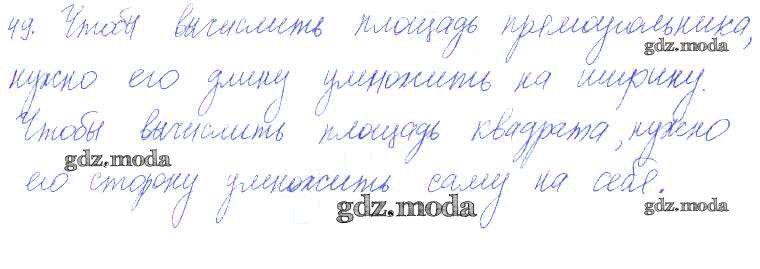 49. Чтобы вычислить площадь прямоугольника,
gdz.moda
нужно его длину умножить на ширину.
Чтобы вычислить площадь квадрата, нужно
gdz.moda
его сторону умножить саму на себя.
gdz.moda
gdz.moda